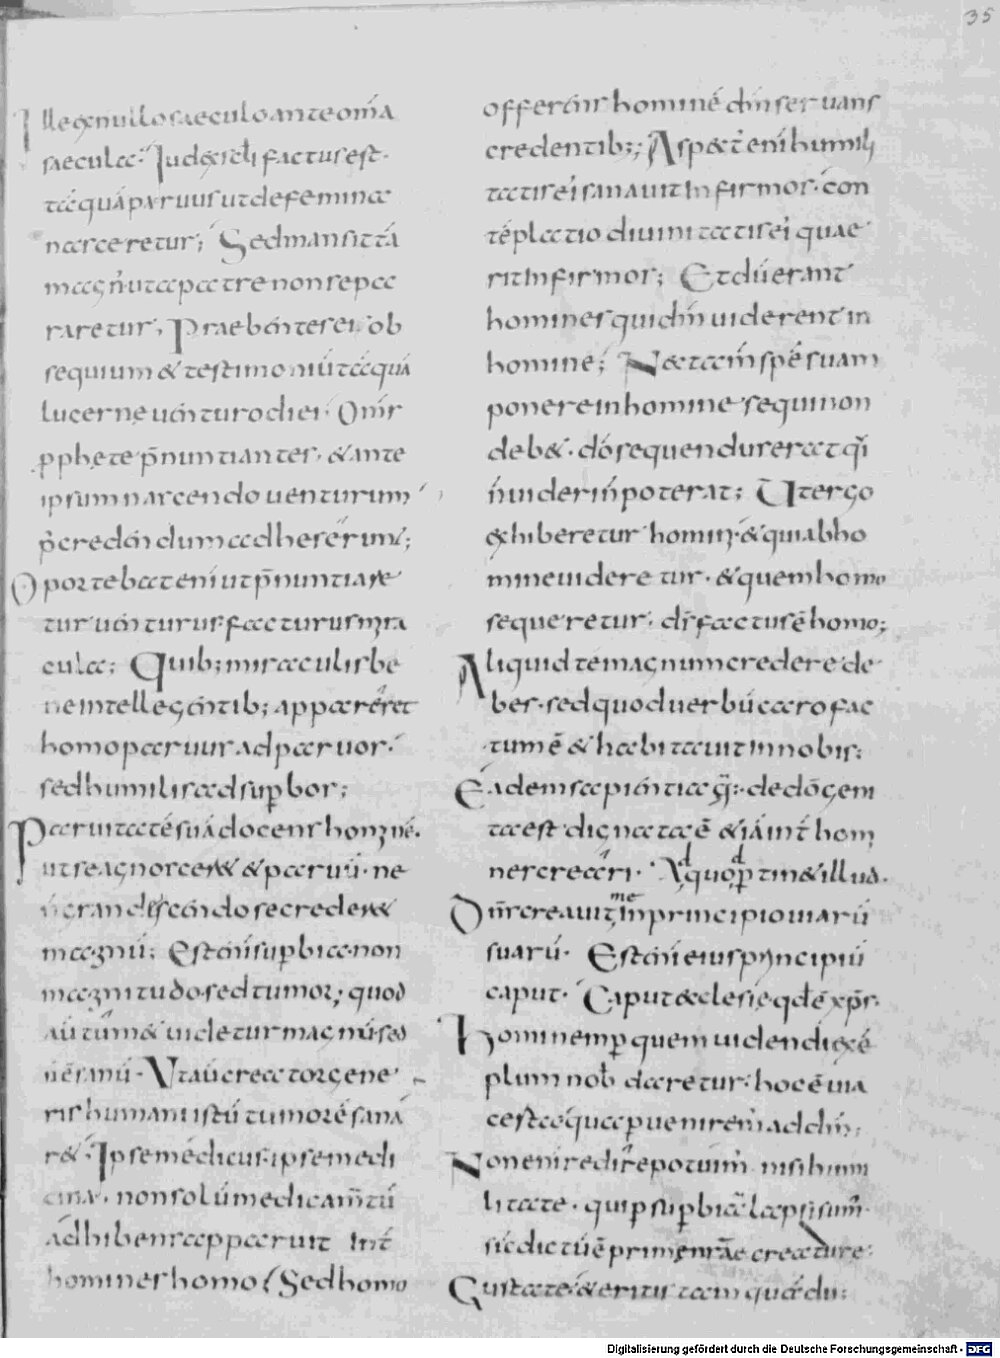 35
Ille ex nullo saeculo ante om̄a
saecula. In d& isr̄l factus est.
tā quā parvus ut de femina
nasceretur; Sed mansit tā
magn' ut a patre non sepa
raretur; Praebentes ei ob
sequium & testimoniū tā quā
lucerne venturo diei. Om̄s
pph&e p̄nuntiantes. & ante
ipsum nascendo venturum
p̄credendum adheserunt;
Oportebat eni ut p̄nuntiare
tur venturus facturus mira
cula; Quib; miraculis be
ne intellegentib; appareret
homo parvus ad parvos.
sed humilis ad superbos;
Parvitatē suā docens homine.
ut se agnoscer& & parvū. ne
n̄ grandescendo se creder&
magnū; Est eni superbia non
magnitudo sed tumor; quod
aū tum& videtur magnū. sed
n̄ ē sanū. Ut aū creator gene
ris humani istū tumorē sana
r&. Ipse medicus. ipse medi
cina. non solū medicam̄tū
adhibens apparuit int̄
homines homo; Sed homo
offerens hominē dm̄ servans
credentib;; Aspect' eni humili
tatis ei sanavit infirmos. con
tēplatio divinitatis ei quae
rit infirmos; Et dūerant
homines qui dm̄ viderent in
homine; N& tam̄ spē suam
ponere in homine sequi non
deb&. dō sequendus erat qui
n̄ videri n̄ poterat; Ut ergo
exhiberetur homini. & qui ab ho
mine videretur. & quem homo
sequeretur. dī factus ē homo;
Aliquid tē magnum credere de
bes. sed quod verbū caro fac
tum ē & habitavit in nobis;
Eadem sapientia q̄. de dō gem
ta est. dignata ē & iā int̄ homi
nes creari. Ad quod ptin& illud.
Dn̄s creavit me in principio viarū
suarū. Est eni eius principiū
caput. Caput ecclesie qd ē xp̄s.
Hominem p quem vidend' exē
plum nob daretur. hoc ē via
certa qua pvenirem' ad dm̄;
Non eni redire potuim' nisi humi
litate. qui p superbiā lapsi sum'.
sic dictū ē prime nrāe creature;
Gustate. & eritis tamquā du;
Digitalisierung gefördert durch die Deutsche Forschungsgemeinschaft - DFG